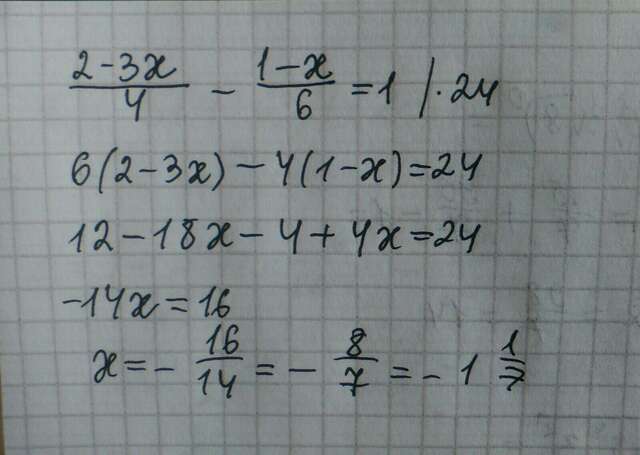 (2-3x)/4 - (1-x)/6 = 1 /·24
6(2-3x)-4(1-x)=24
12-18x-4+4x=24
-14x=16
x=-16/14=-8/7=-1 1/7